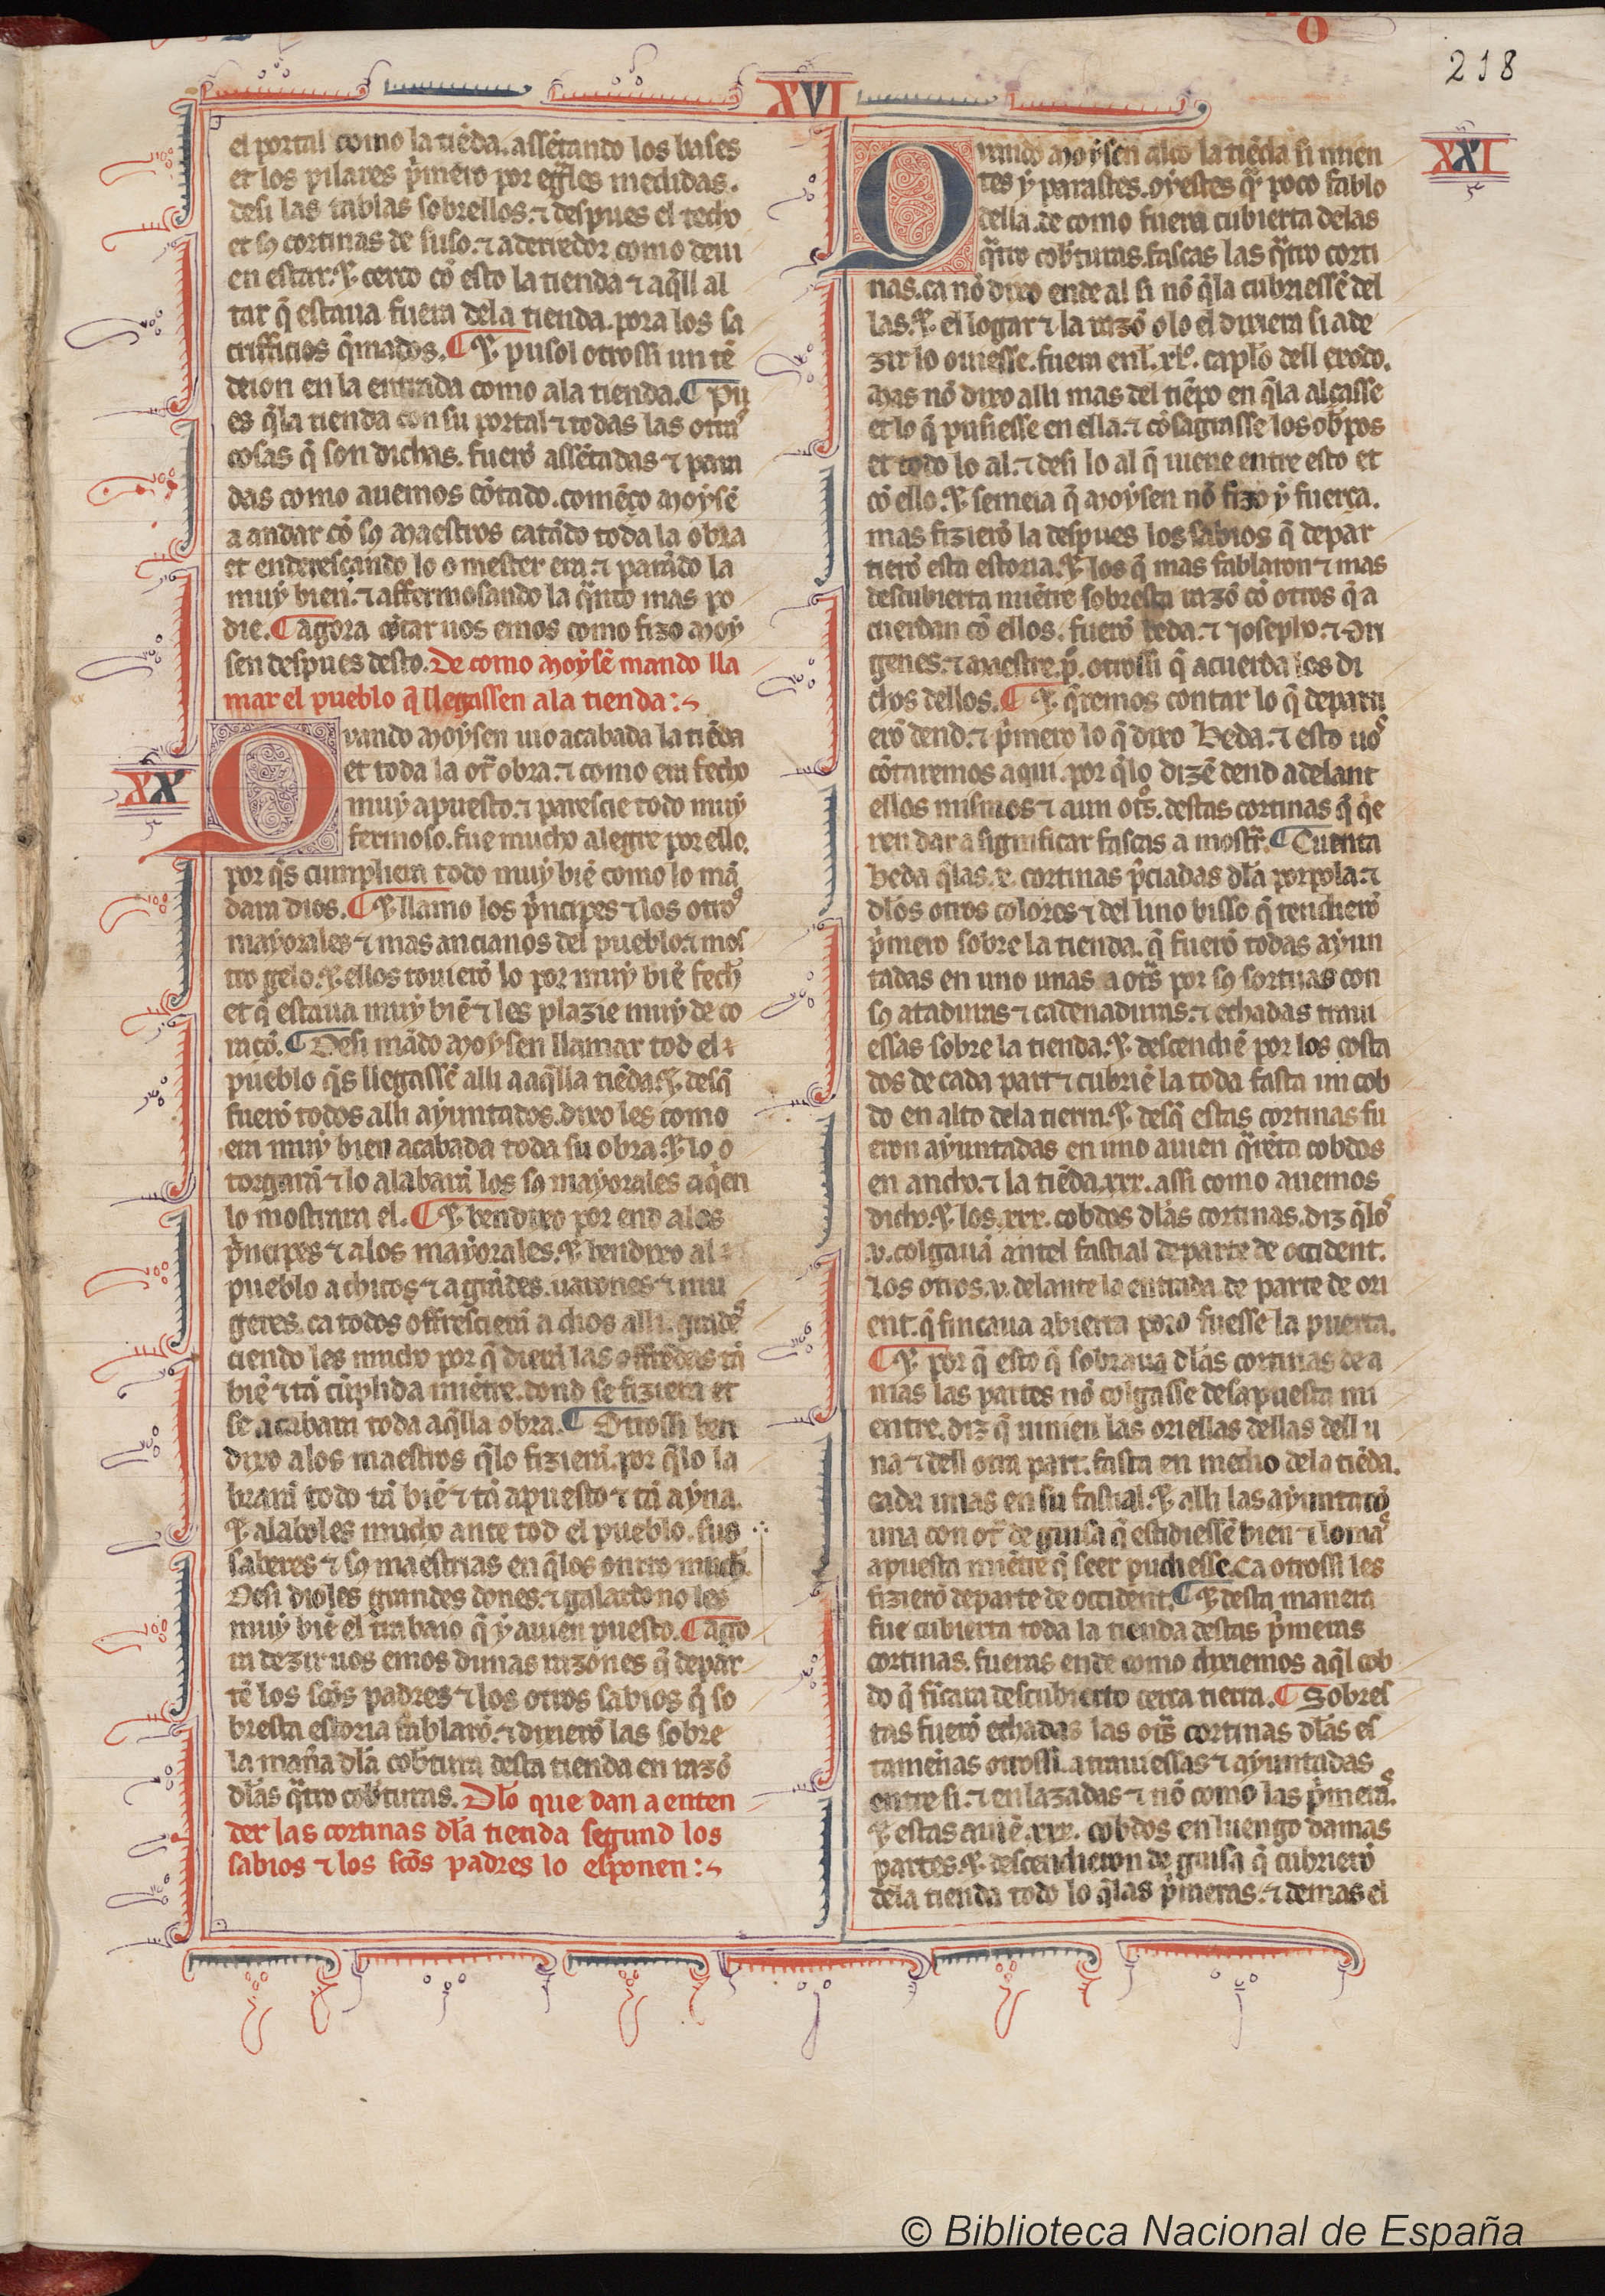 O
218
XVI
el portal como la tiẽda. assẽtando los bases
et los pilares p̾mero por eg̃les medidas.
desi las tablas sobrellos. ⁊ despues el techo
et sꝯ cortinas de suso. ⁊ aderredor como deui
en estar. ⁊ cerco cõ esto la tienda ⁊ aq̃ll al
tar q̃ estaua fuera dela tienda. pora los sa
crifficios q̃mados. ¶ ⁊ pusol otrossi un tẽ
deion en la entrada como ala tienda. ¶ Pu
es q̃la tienda con su portal ⁊ todas las otras
cosas q̃ son dichas. fuerõ assẽtadas ⁊ para
das como auemos cõtado. comẽço moysẽ
a andar cõ sꝯ maestros catãdo toda la obra
et enderesçando lo o mester era. ⁊ parãdo la
muy bien. ⁊ affermosando la q̃nto mas po
die. ¶ agora cõtar uos emos como fizo moy
sen despues desto. De como moysẽ mando lla
mar el pueblo q̃ llegassen ala tienda:
XX
Quando moysen uio acabada la tiẽda
et toda la ot̃ obra. ⁊ como era fecho
muy apuesto. ⁊ parescie todo muy
fermoso. fue mucho alegre por ello.
por q̃s cumpliera todo muy biẽ como lo mã
dara dios. ¶ ⁊ llamo los p̾ncipes ⁊ los otros
mayorales ⁊ mas ancianos del pueblo. ⁊ mos
tro gelo. ⁊ ellos touierõ lo por muy biẽ fech̃
et q̃ estaua muy biẽ ⁊ les plazie muy de co
raçõ. ¶ Desi mãdo moysen llamar tod el
pueblo q̃s llegassẽ alli a aq̃lla tiẽda. ⁊ desq̃
fuerõ todos alli ayuntados. dixo les como
era muy bien acabada toda su obra. ⁊ lo o
torgarã ⁊ lo alabarã los sꝯ mayorales a q̃en
lo mostrara el. ¶ ⁊ bendixo por end alos
p̾ncipes ⁊ alos mayorales. ⁊ bendixo al
pueblo a chicos ⁊ a grãdes. uarones ⁊ mu
geres. ca todos offrescierã a dios alli. grades
ciendo les mucho por q̃ dierã las offrẽdas tã
biẽ ⁊ tã cũplida miẽtre. dond se fiziera et
se acabara toda aq̃lla obra. ¶ Otrossi ben
dixo alos maestros q̃lo fizierã. por q̃lo la
brarã todo tã biẽ ⁊ tã apuesto ⁊ tã ayna.
⁊ alaboles mucho ante tod el pueblo. sus
saberes ⁊ sꝯ maestrias en q̃los onrro much̃.
Desi dioles grandes dones. ⁊ galardono les
muy biẽ el trabaio q̃ y auien puesto. ¶ ago
ra dezir uos emos dunas razones q̃ depar
tẽ los scõs padres ⁊ los otros sabios q̃ so
bresta estoria fablarõ. ⁊ dixierõ las sobre
la mañã dlã cob̃tura desta tienda en razõ
dlãs q̃tro cob̃turas. Dlõ que dan a enten
der las cortinas dlã tienda segund los
sabios ⁊ los scõs padres lo esponen:
XXI
Quando moysen alço la tiẽda si mien
tes y parastes. oyestes q̃ poco fablo
della. de como fuera cubierta delas
q̃tro cob̃turas. fascas las q̃tro corti
nas. ca nõ dixo ende al si nõ q̃la cubriessẽ del
las. ⁊ el logar ⁊ la razõ o lo el dixiera si a de
zir lo ouiesse. fuera enl̃. xlº. capl̃o dell exodo.
mas nõ dixo alli mas del tiẽpo en q̃la alçasse
et lo q̃ pusiesse en ella. ⁊ cõsagrasse los ob̃pos
et todo lo al. ⁊ desi lo al q̃ uiene entre esto et
cõ ello. ⁊ semeia q̃ moysen nõ fizo y fuerça.
mas fizierõ la despues los sabios q̃ depar
tierõ esta estoria. ⁊ los q̃ mas fablaron ⁊ mas
descubierta miẽtre sobresta razõ cõ otros q̃ a
cuerdan cõ ellos. fuerõ beda. ⁊ Josepho. ⁊ Ori
genes. ⁊ maestre. p̃. otrossi q̃ acuerda los di
chos dellos. ¶ ⁊ q̃remos contar lo q̃ departi
erõ dend. ⁊ p̾mero lo q̃ dixo Beda. ⁊ esto uos
cõtaremos aqui. por q̃lo dizẽ dend adelant
ellos mismos ⁊ aun ot̃s. destas cortinas q̃ q̃e
ren dar a significar fascas a mostr̃. ¶ Cuenta
beda q̃las. x. cortinas p̾ciadas dlã porpola. ⁊
dlõs otros colores ⁊ del lino bisso q̃ tendierõ
p̾mero sobre la tienda. q̃ fuerõ todas ayun
tadas en uno unas a ot̃s por sꝯ sortijas con
sꝯ ataduras ⁊ cadenaduras. ⁊ echadas traui
essas sobre la tienda. ⁊ descendiẽ por los costa
dos de cada part ⁊ cubriẽ la toda fasta un cob
do en alto dela tierra. ⁊ desq̃ estas cortinas fu
eron ayuntadas en uno auien q̃rẽta cobdos
en ancho. ⁊ la tiẽda. xxx. assi como auemos
dicho. ⁊ los. xxx. cobdos dlãs cortinas. diz q̃los
.v. colgauã antel fastial de parte de occident.
los otros. v. delante la entrada de parte de ori
ent. q̃ fincaua abierta poro fuesse la puerta.
¶ ⁊ por q̃ esto q̃ sobraua dlãs cortinas de a
mas las partes nõ colgasse desapuesta mi
entre. diz q̃ uinien las oriellas dellas dell u
na ⁊ dell otra part. fasta en medio dela tiẽda.
cada unas en su fastial. ⁊ alli las ayuntarõ
una con ot̃ de guisa q̃ estidiessẽ bien ⁊ lo mas
apuesta miẽtre q̃ seer pudiesse. Ca otrossi les
fizierõ de parte de occident. ¶ ⁊ desta manera
fue cubierta toda la tienda destas p̾meras
cortinas. fueras ende como dixiemos aq̃l cob
do q̃ fincara descubierto cerca tierra. ¶ Sobres
tas fuerõ echadas las ot̃s cortinas dlãs es
tameñas otrossi. atrauessas ⁊ ayuntadas
entre si. ⁊ enlazadas ⁊ nõ como las p̾meras.
⁊ estas auiẽ. xxx. cobdos en luengo damas
partes. ⁊ descendieron de guisa q̃ cubrierõ
dela tienda todo lo q̃las p̾meras. ⁊ demas el
© Biblioteca Nacional de España